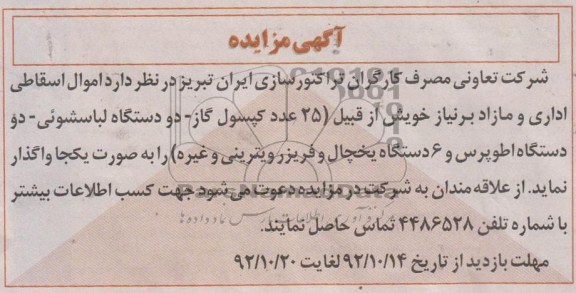 آگهی مزایده
شرکت تعاونی مصرف کارگران تراکتورسازی ایران تبریز در نظر دارد اموال اسقاطی
اداری و مازاد برنیاز خویش از قبیل (۲۵ عدد کپسول گاز- دو دستگاه لباسشوئی- دو
دستگاه اطوپرس و ۶ دستگاه یخچال و فریزر ویترینی و غیره) را به صورت یکجا واگذار
نماید. از علاقه مندان به شرکت در مزایده دعوت می شود جهت کسب اطلاعات بیشتر
با شماره تلفن ۴۴۸۶۵۲۸ تماس حاصل نمایند.
مهلت بازدید از تاریخ ۹۲/۱۰/۱۴ لغایت ۹۲/۱۰/۲۰